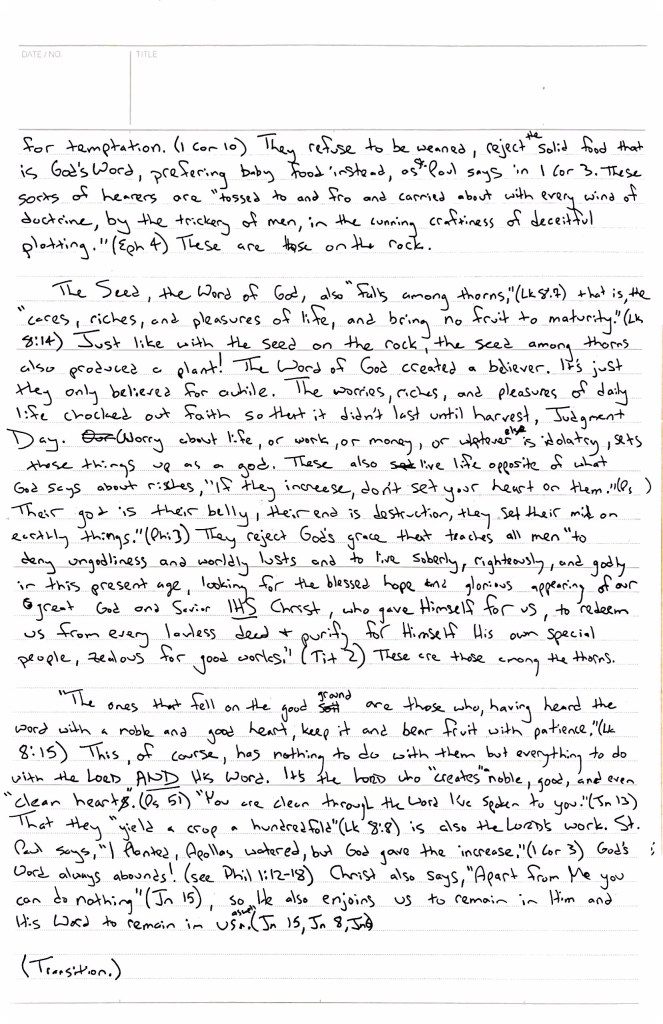 DATE / NO.
TITLE
for temptation. (1 Cor 10) They refuse to be weaned, reject the solid food that
is God's Word, prefering baby food instead, as St. Paul says in 1 Cor 3. These
sorts of hearers are "tossed to and fro and carried about with every wind of
doctrine, by the trickery of men, in the cunning craftiness of deceitful
plotting." (Eph 4) These are those on the rock.
The Seed, the Word of God, also "falls among thorns," (Lk 8:7) that is, the
"cares, riches, and pleasures of life, and bring no fruit to maturity." (Lk
8:14) Just like with the seed on the rock, the seed among thorns
also produced a plant! The Word of God created a believer. It's just
they only believed for awhile. The worries, riches, and pleasures of daily
life chocked out faith so that it didn't last until harvest, Judgment
Day. Our Worry about life, or work, or money, or whatever else is idolatry, sets
those things up as a god. These also live life opposite of what
God says about riches, "If they increase, don't set your heart on them." (Ps )
Their god is their belly, their end is destruction, they set their mid on
earthly things." (Phi 3) They reject God's grace that teaches all men "to
deny ungodliness and worldly lusts and to live soberly, righteously, and godly
in this present age, looking for the blessed hope and glorious appearing of our
great God and Savior IHS Christ, who gave Himself for us, to redeem
us from every lawless deed + purify for Himself His own special
people, zealous for good works." (Tit 2) These are those among the thorns.
"The ones that fell on the good soil ground are those who, having heard the
word with a noble and good heart, keep it and bear fruit with patience," (Lk
8:15) This, of course, has nothing to do with them but everything to do
with the LORD AND His Word. It's the LORD who "creates" noble, good, and even
"clean hearts". (Ps 51) "You are clean through the Word I've spoken to you." (Jn 13)
That they "yield a crop a hundredfold" (Lk 8:8) is also the LORD's work. St.
Paul says, "I planted, Apollos watered, but God gave the increase," (1 Cor 3) God's
Word always abounds! (see Phil 1:12-18) Christ also says, "Apart from Me you
can do nothing" (Jn 15), so He also enjoins us to remain in Him and
His Word to remain in us. (Jn 15, Jn 8,
(Transition.)